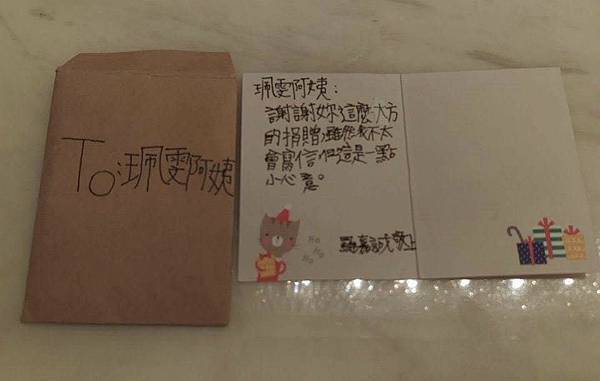 To:珮雯阿姨
珮雯阿姨:
謝謝妳這麼大方
的捐贈,雖然我不太
會寫信,但這是一點
小心意。
敬上
Ho
Ho
Ho